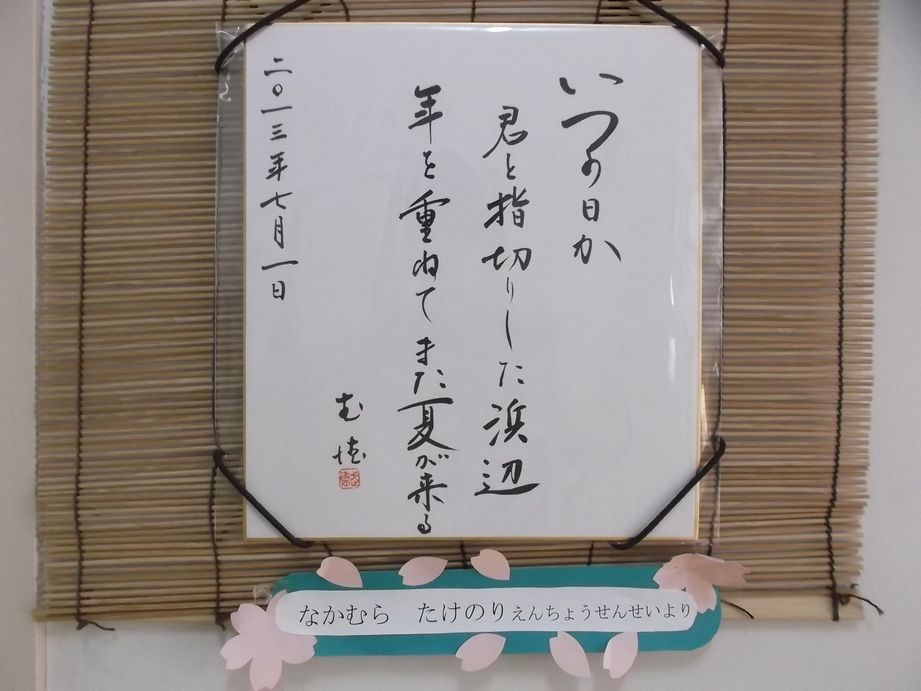 いつの日か
君と指切りした浜辺
年を重ねてまた夏が来る
武徳
二〇一三年七月一日
なかむら　たけのりえんちょうせんせいより